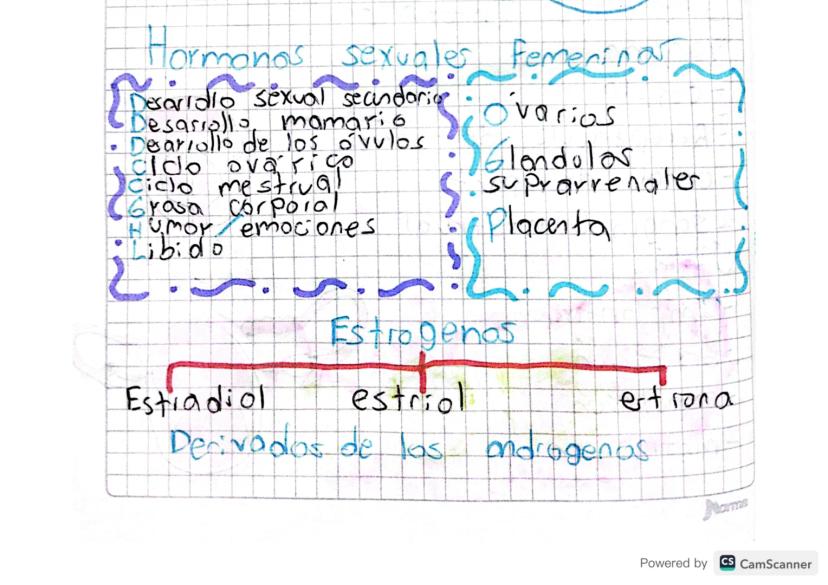 Hormonas sexuales femeninas
Desarollo sexual secundario
Desarrollo mamario
Dearrollo de los óvulos
Ciclo ovárico
Ciclo mestrual
Grasa corporal
Humor/emociones
Libido
Ovarios
Glandulas
suprarrenales
Placenta
Estrogenos
Estradiol estriol estrona
Derivados de los androgenos
Norma
Powered by CS CamScanner